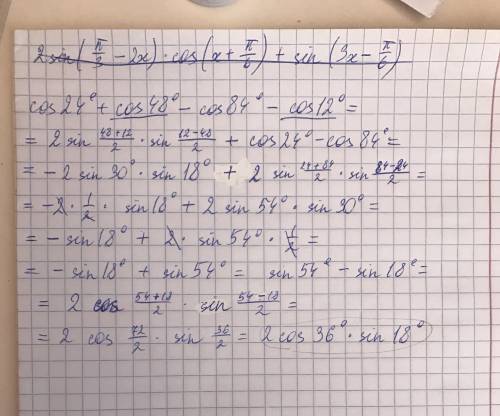 2 sin(π/3 − 2x) · cos(x + π/6) + sin(3x − π/6)
cos 24° + cos 48° − cos 84° − cos 12° =
= 2 sin (48+12)/2 · sin (12−48)/2 + cos 24° − cos 84° =
= −2 sin 30° · sin 18° + 2 sin (24+84)/2 · sin (84−24)/2 =
= −2 · 1/2 · sin 18° + 2 sin 54° · sin 30° =
= − sin 18° + 2 · sin 54° · 1/2 =
= − sin 18° + sin 54° = sin 54° − sin 18° =
= 2 cos (54+18)/2 · sin (54−18)/2 =
= 2 cos 72/2 · sin 36/2 = 2 cos 36° · sin 18°